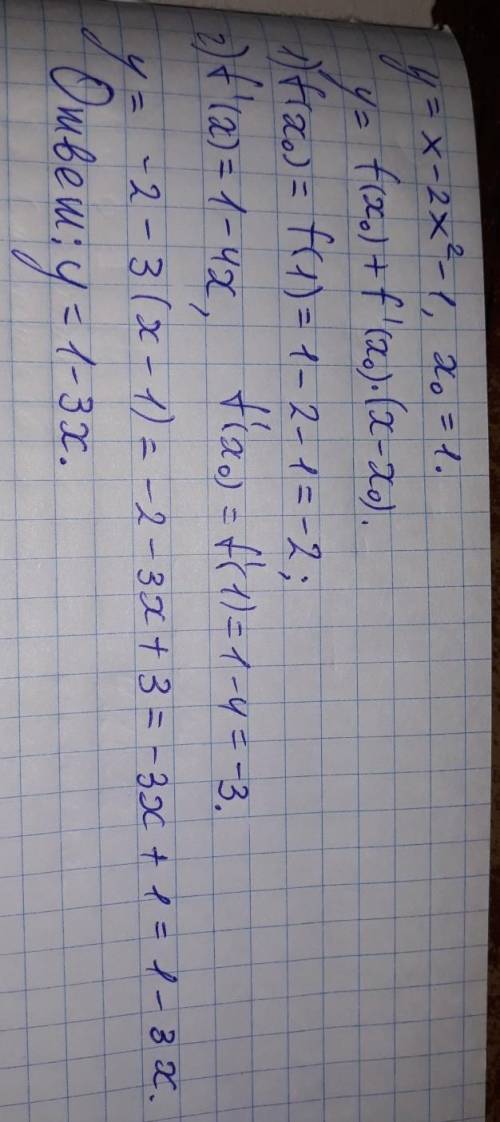 y = x - 2x² - 1, x₀ = 1.
y = f(x₀) + f'(x₀)·(x - x₀).
1) f(x₀) = f(1) = 1 - 2 - 1 = -2;
2) f'(x) = 1 - 4x, f'(x₀) = f'(1) = 1 - 4 = -3.
y = -2 - 3(x - 1) = -2 - 3x + 3 = -3x + 1 = 1 - 3x.
Ответ: y = 1 - 3x.